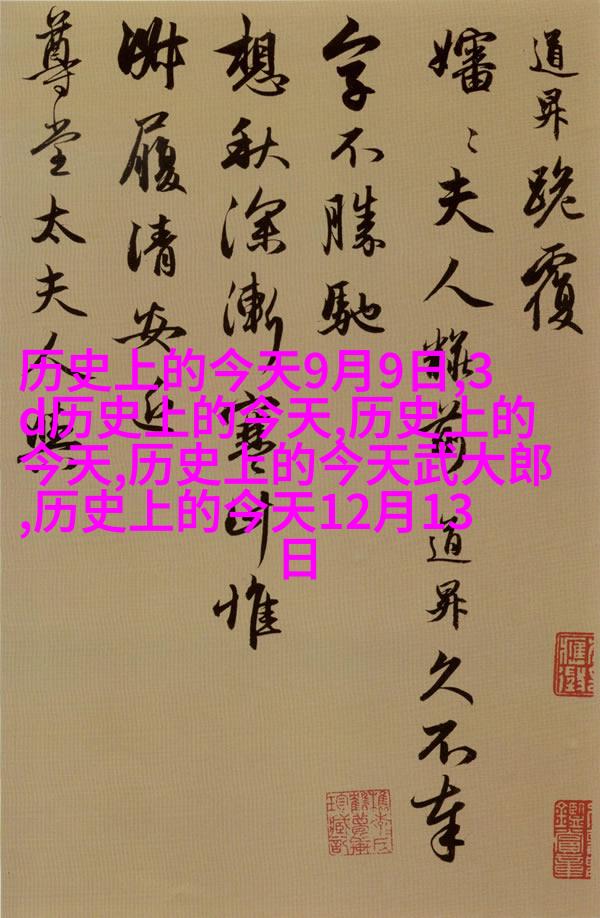 道昇跪覆
嬸〻夫人粧前道昇久不奉
字不勝馳
想秋深漸寒計惟
淑履清安近
尊堂太夫人與
历史上的今天9月9日,3
d历史上的今天,历史上的
今天,历史上的今天武大郎
,历史上的今天12月13
日